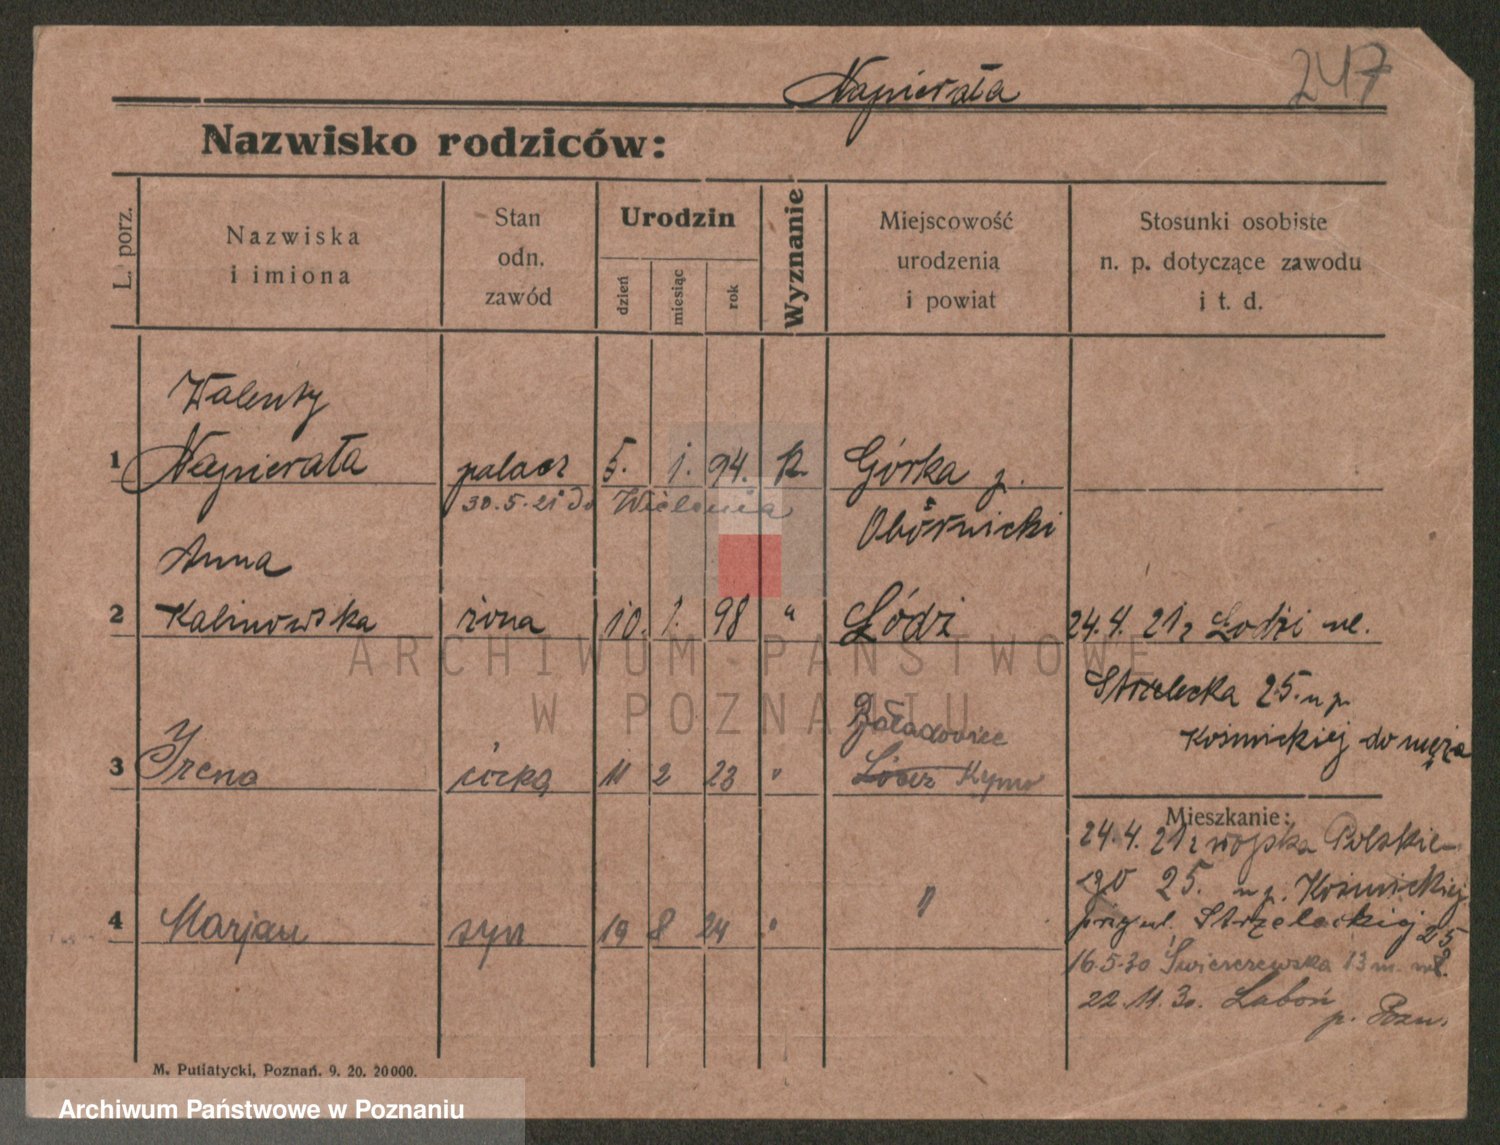 Napierała
247
Nazwisko rodziców:
L. porz.
Nazwiska
i imiona
Stan
odn.
zawód
Urodzin
dzień
miesiąc
rok
Wyznanie
Miejscowość
urodzenia
i powiat
Stosunki osobiste
n. p. dotyczące zawodu
i t. d.
Walenty
1 Napierała palacz 5. 1. 94. k. Górka p.
30.5.21 do Wielenia Obórnicki
Anna
2 Kalinowska żona 10. 1. 98 " Łódzi 24.4.21 z Łodzi ul.
Strzelecka 25. u p.
Kośmickiej do męża
3 Irena córka 11 2 23 "
4 Marjan syn 19 8 24 " "
Mieszkanie:
24.4.21 z wojska Polskie-
go 25. u p. Kośmickiej
przy ul. Strzeleckiej 25
16.5.30 Świerczewska 13 m.
22.11.30. Laboń
p. Pozn.
M. Putiatycki, Poznań. 9. 20. 20000.
ARCHIWUM PAŃSTWOWE
W POZNANIU
Archiwum Państwowe w Poznaniu